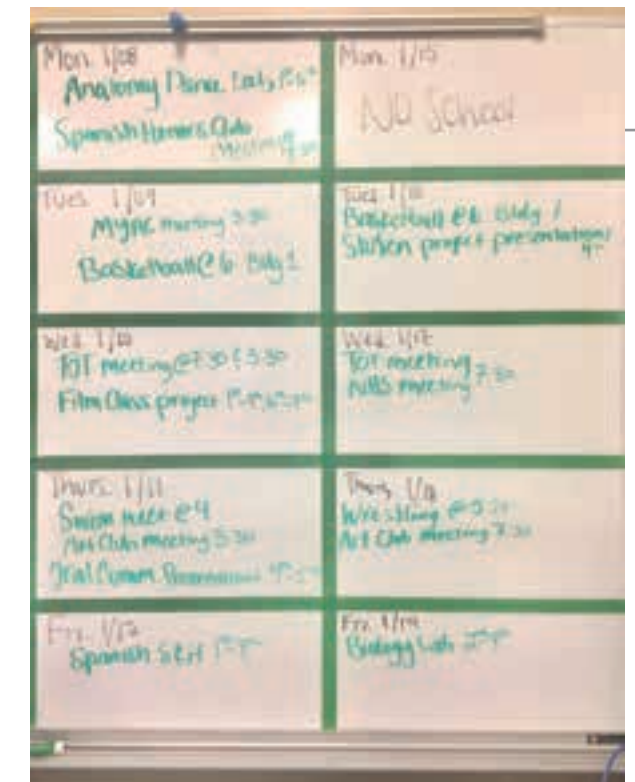 Mon. 1/08
Anatomy
Spanish Honors Club
Meeting
Tues. 1/09
meeting 3:30
Basketball @ 6 Bldg 1
Wed. 1/10
TOT meeting @ 7:30 & 3:30
Film Class project
Thurs. 1/11
Swim meet @ 4
Art Club meeting 3:30
Oral Comm. Presentations
Fri. 1/12
Spanish
Mon. 1/15
NO School
Tues. 1/16
Basketball @ 6 Bldg 1
project presentations
Wed. 1/17
TOT meeting
NHS meeting 7:30
Thurs. 1/18
Wrestling @
Art Club meeting 7:30
Fri. 1/19
Biology Lab